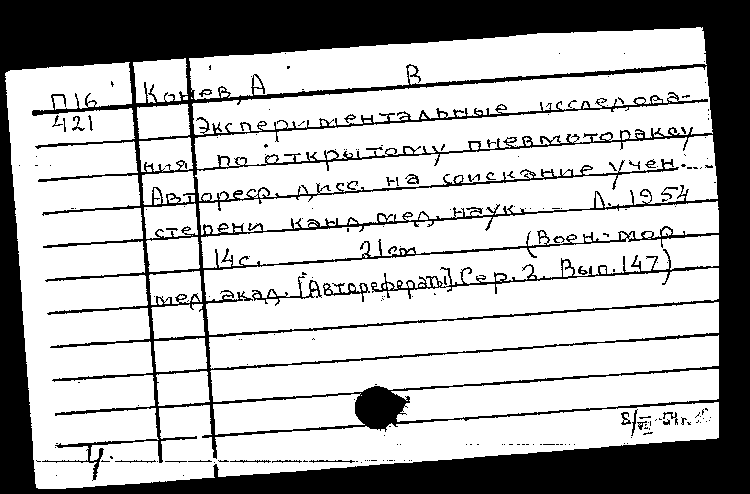 П16 Конев, А В
421 Экспериментальные исследова-
ния по открытому пневмотораксу
Автореф. дисс. на соискание учен.
степени канд. мед. наук. Л., 1954
14с. 21см (Воен.-мор.
мед. акад. [Авторефераты]. Сер. 2. Вып. 147)
8/VII-54г.
Ч.